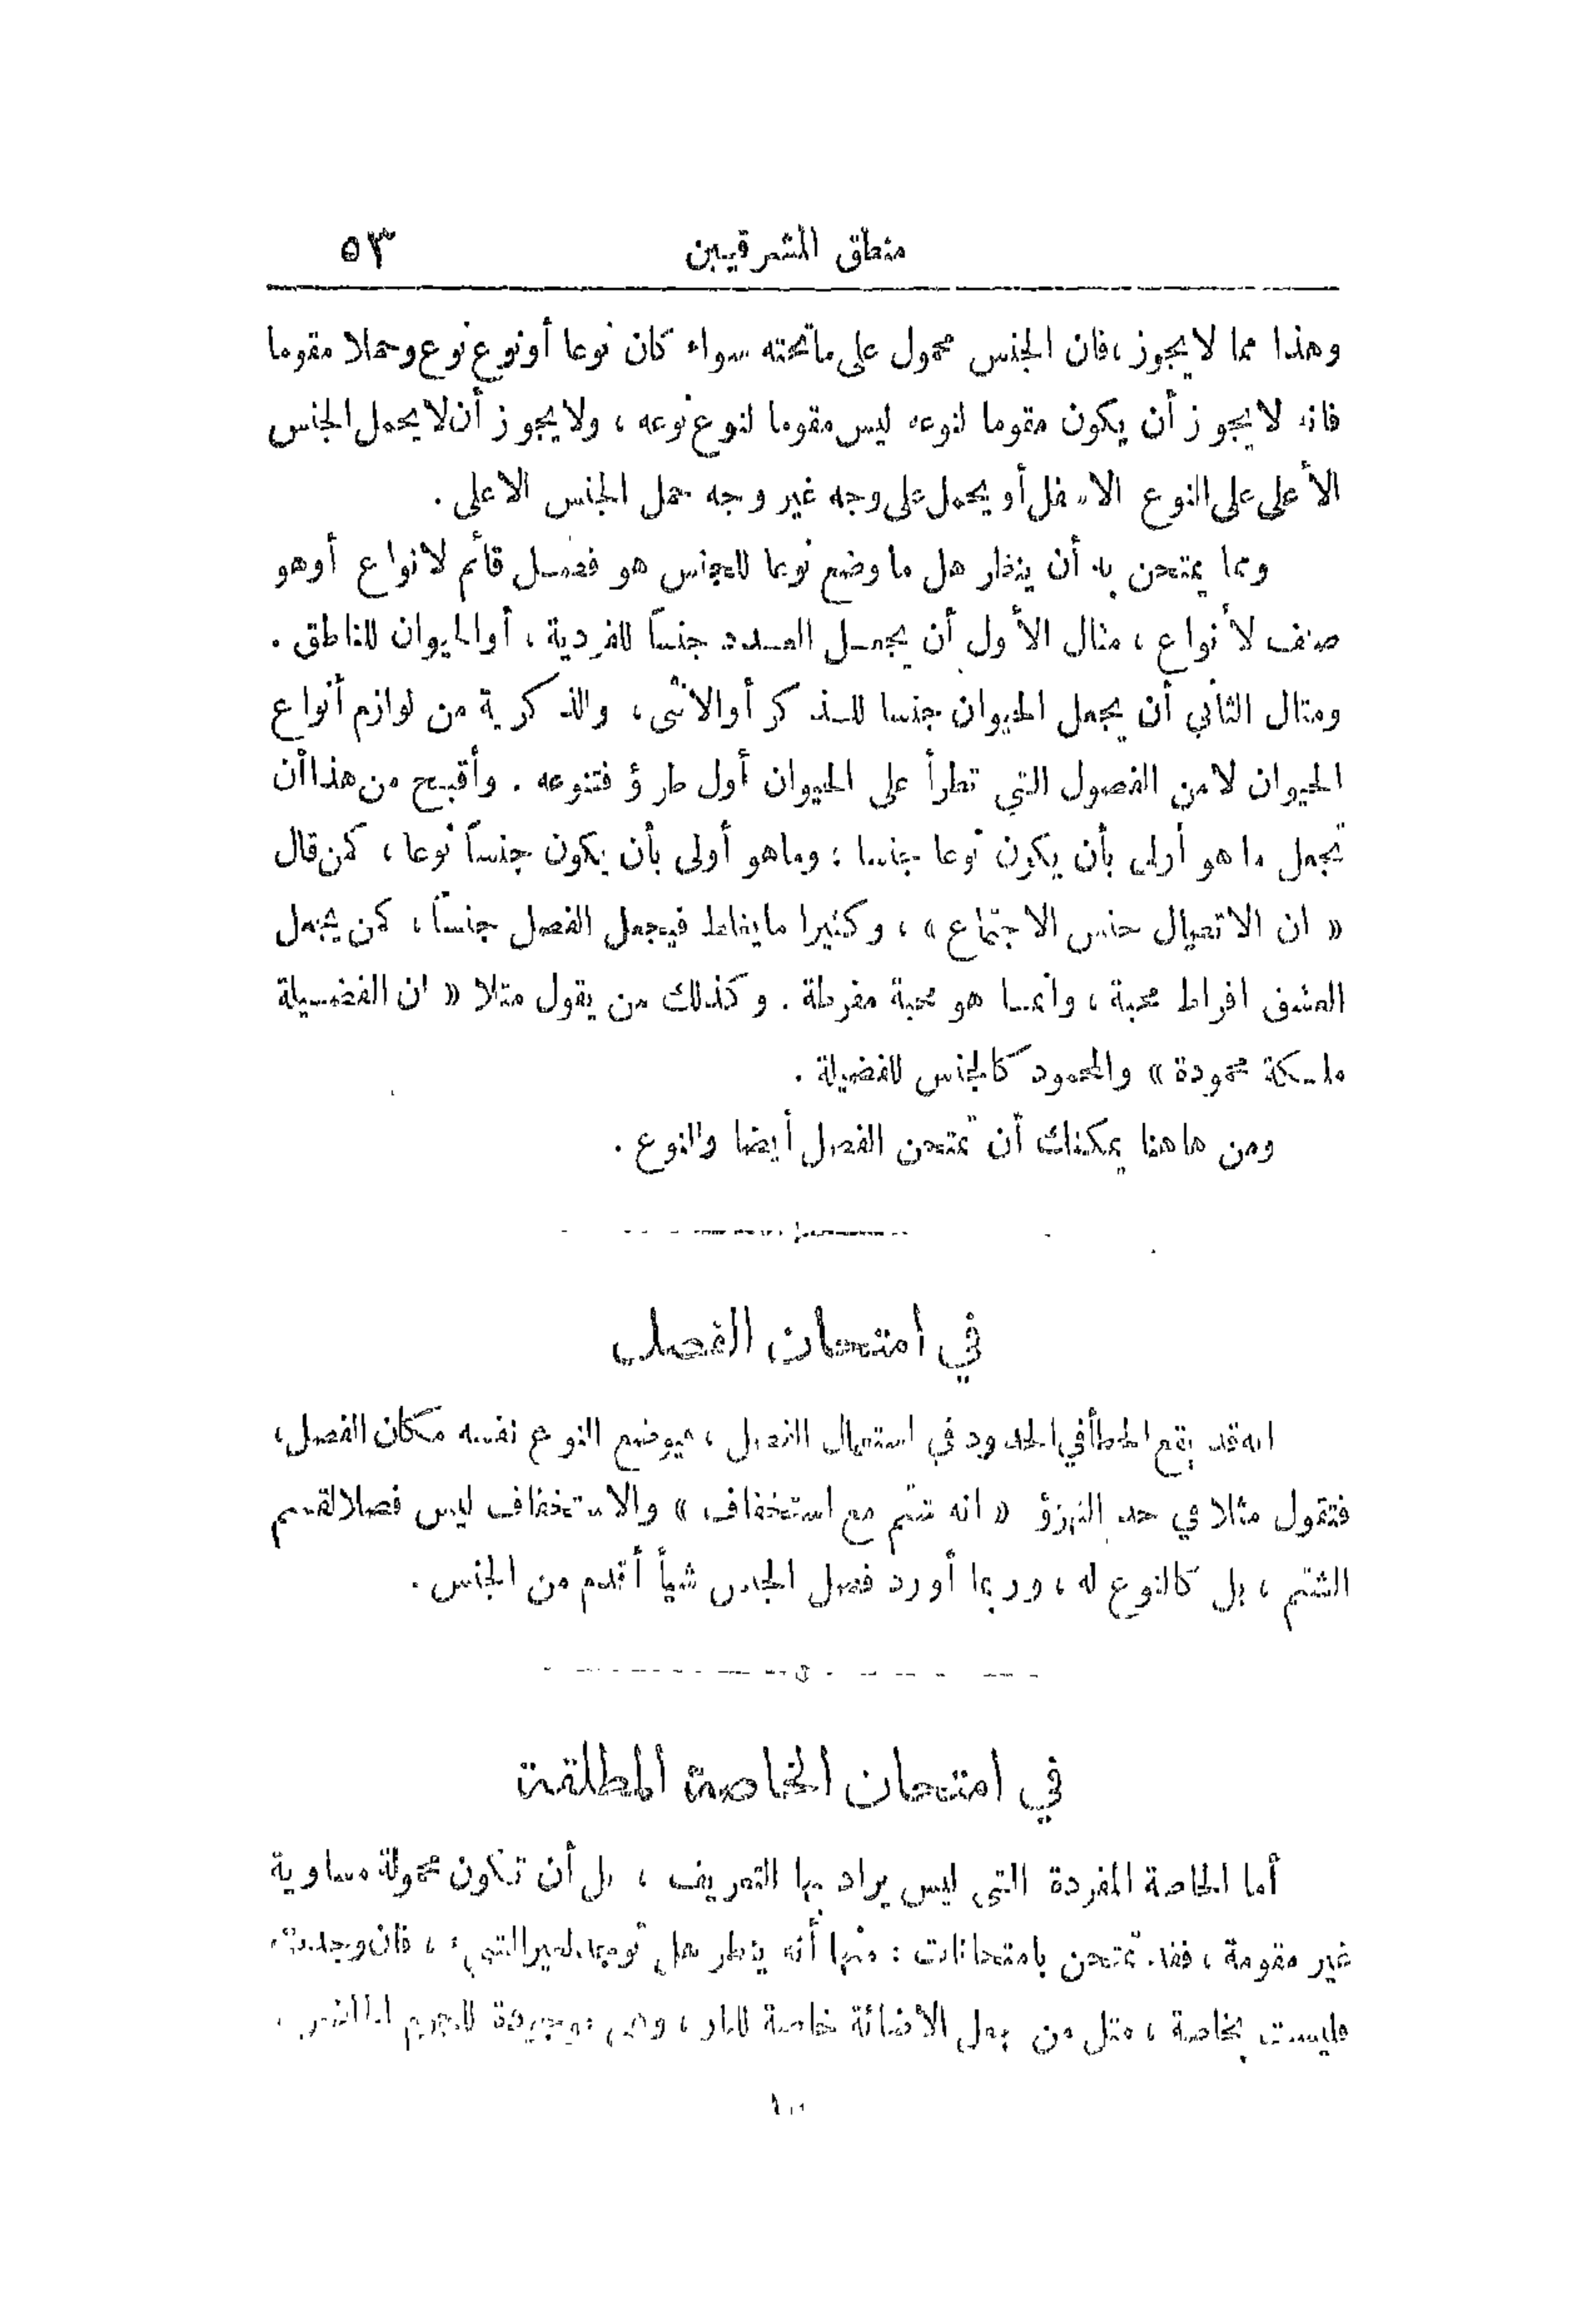 منطق المشرقيين ٥٣
وهذا مما لا يجوز ، فان الجنس محمول على ما تحته سواء كان نوعا أو نوع نوع وحملا مقوما
فانه لا يجوز أن يكون مقوما لنوعه ليس مقوما لنوع نوعه ، ولا يجوز أن لا يحمل الجنس
الأعلى على النوع الاسفل أو يحمل على وجه غير وجه حمل الجنس الاعلى .
ومما يمتحن به أن ينظر هل ما وضع نوعا للجنس هو فصل قائم لانواع أو هو
صنف لأنواع ، مثال الأول أن يجعل العدد جنساً للفردية ، أو الحيوان للناطق .
ومثال الثاني أن يجعل الحيوان جنسا للذكر أو الانثى ، والذكرية من لوازم أنواع
الحيوان لا من الفصول التي تطرأ على الحيوان أول طرؤ فتنوعه . وأقبح من هذا أن
تجعل ما هو أولى بأن يكون نوعا جنسا ؛ وما هو أولى بأن يكون جنساً نوعا ، كمن قال
« ان الاتصال جنس الاجتماع » ، وكثيرا ما يغلط فيجعل الفصل جنساً ، كمن يجعل
العشق افراط محبة ، وانما هو محبة مفرطة . وكذلك من يقول مثلا « ان الفضيلة
ملكة محمودة » والمحمود كالجنس للفضيلة .
ومن هاهنا يمكنك أن تمتحن الفصل أيضا والنوع .
في امتحان الفصل
انه قد يقع الخطأ في الحدود في استعمال الفصل ، فيوضع النوع نفسه مكان الفصل ،
فتقول مثلا في حد الهزؤ « انه شتم مع استخفاف » والاستخفاف ليس فصلا لقسم
الشتم ، بل كالنوع له ، وربما أورد فصل الجنس شيأ أقدم من الجنس .
في امتحان الخاصة المطلقة
أما الخاصة المفردة التي ليس يراد بها التعريف ، بل أن تكون محمولة مساوية
غير مقومة ، فقد تمتحن بامتحانات : منها أنه ينظر هل توجد لغير الشيء ، فان وجدت
فليست بخاصة ، مثل من جعل الأضائة خاصة للنار ، وهي موجودة للجرم